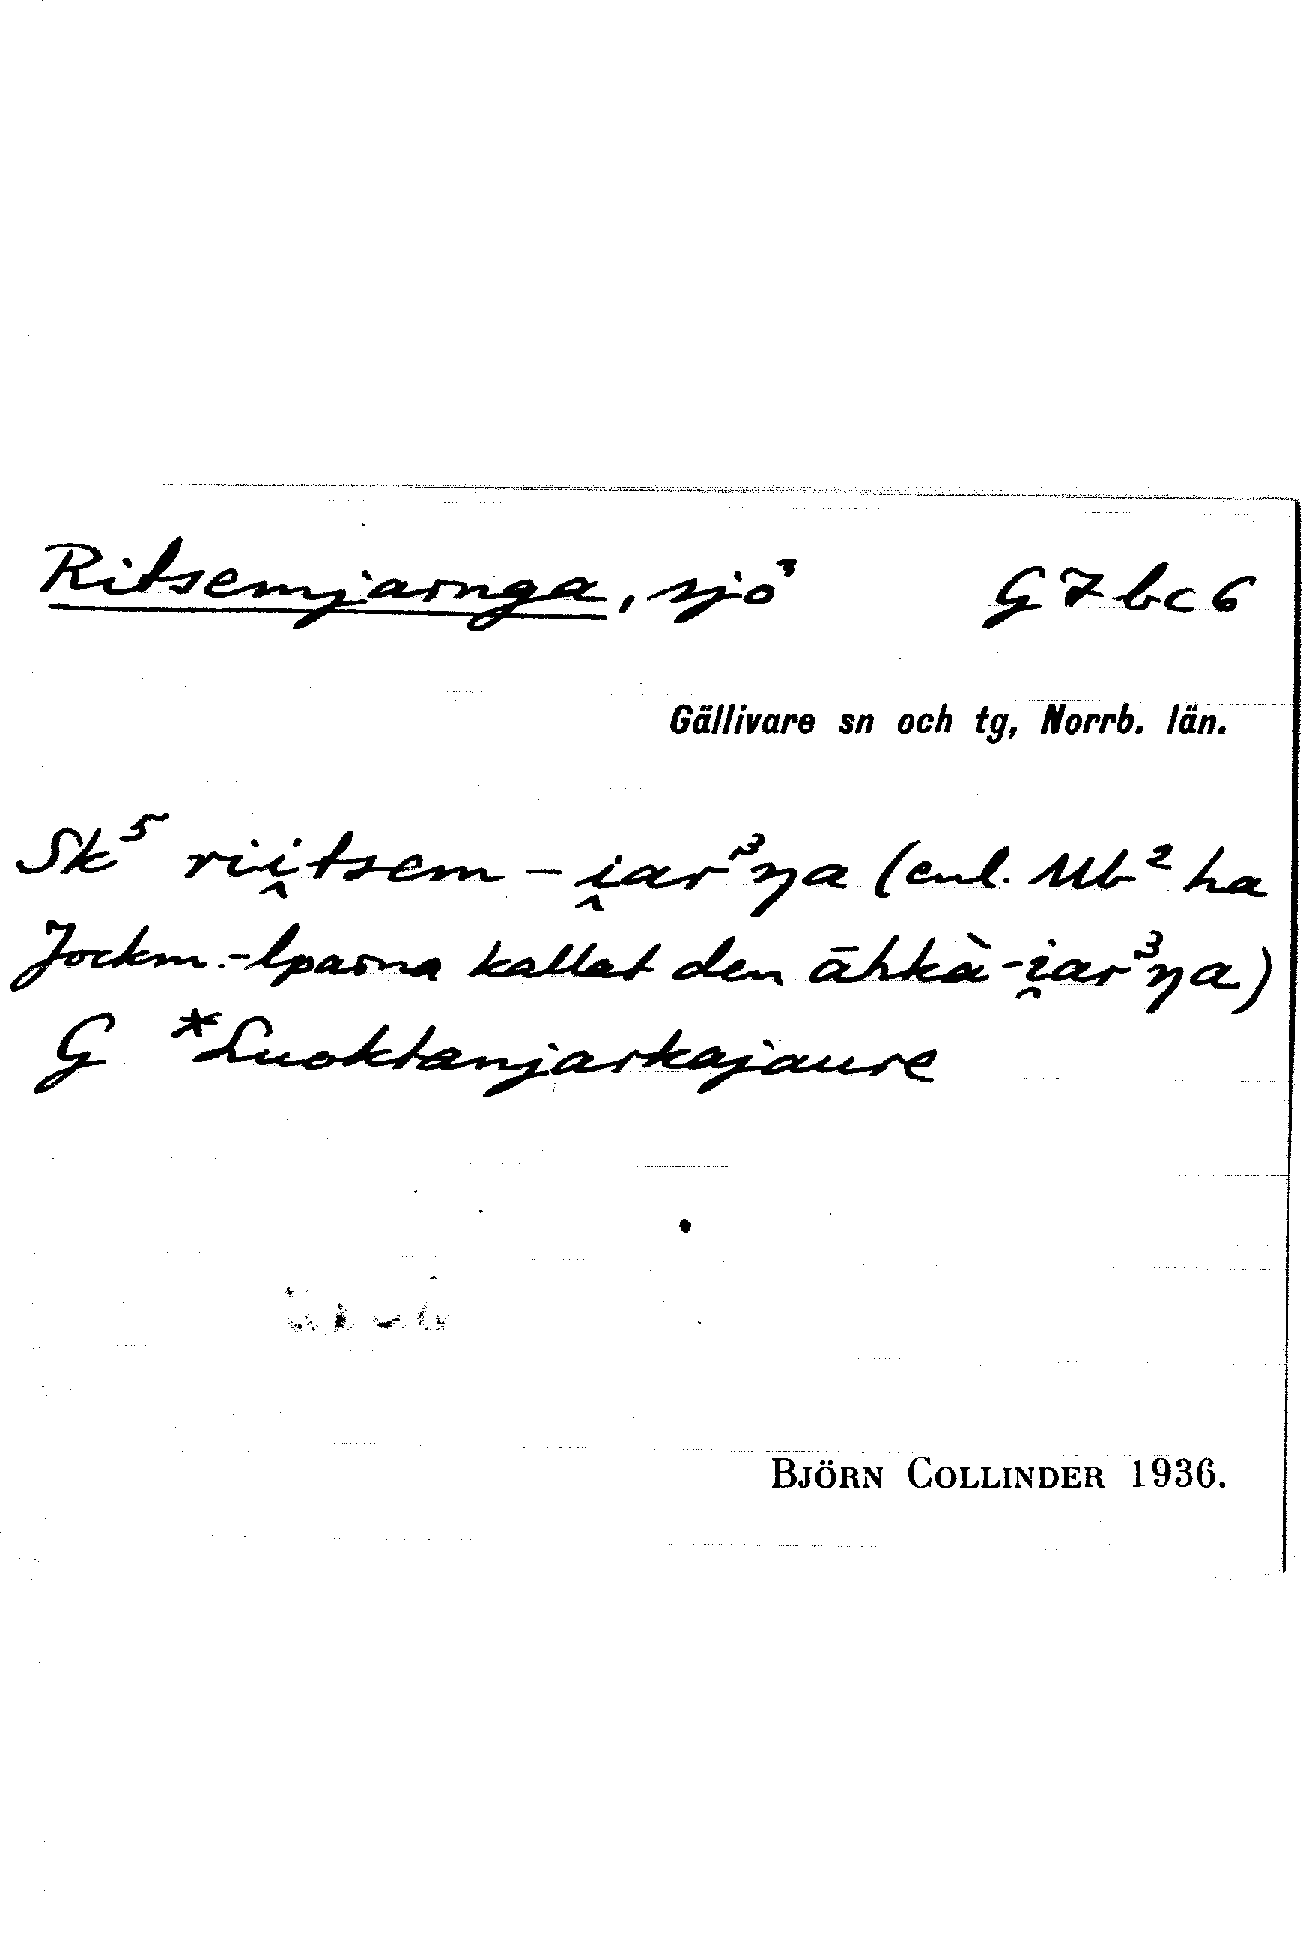 Ritsemjarnga, sjö G7bc6
Gällivare sn och tg, Norrb. län.
Sk⁵ rii̯tsem-i̯ar³ŋa (enl. Mb² ha
Jockm.-lparna kallat den āhkà-i̯ar³ŋa)
G *Luoktanjarkajaure
BJÖRN COLLINDER 1936.